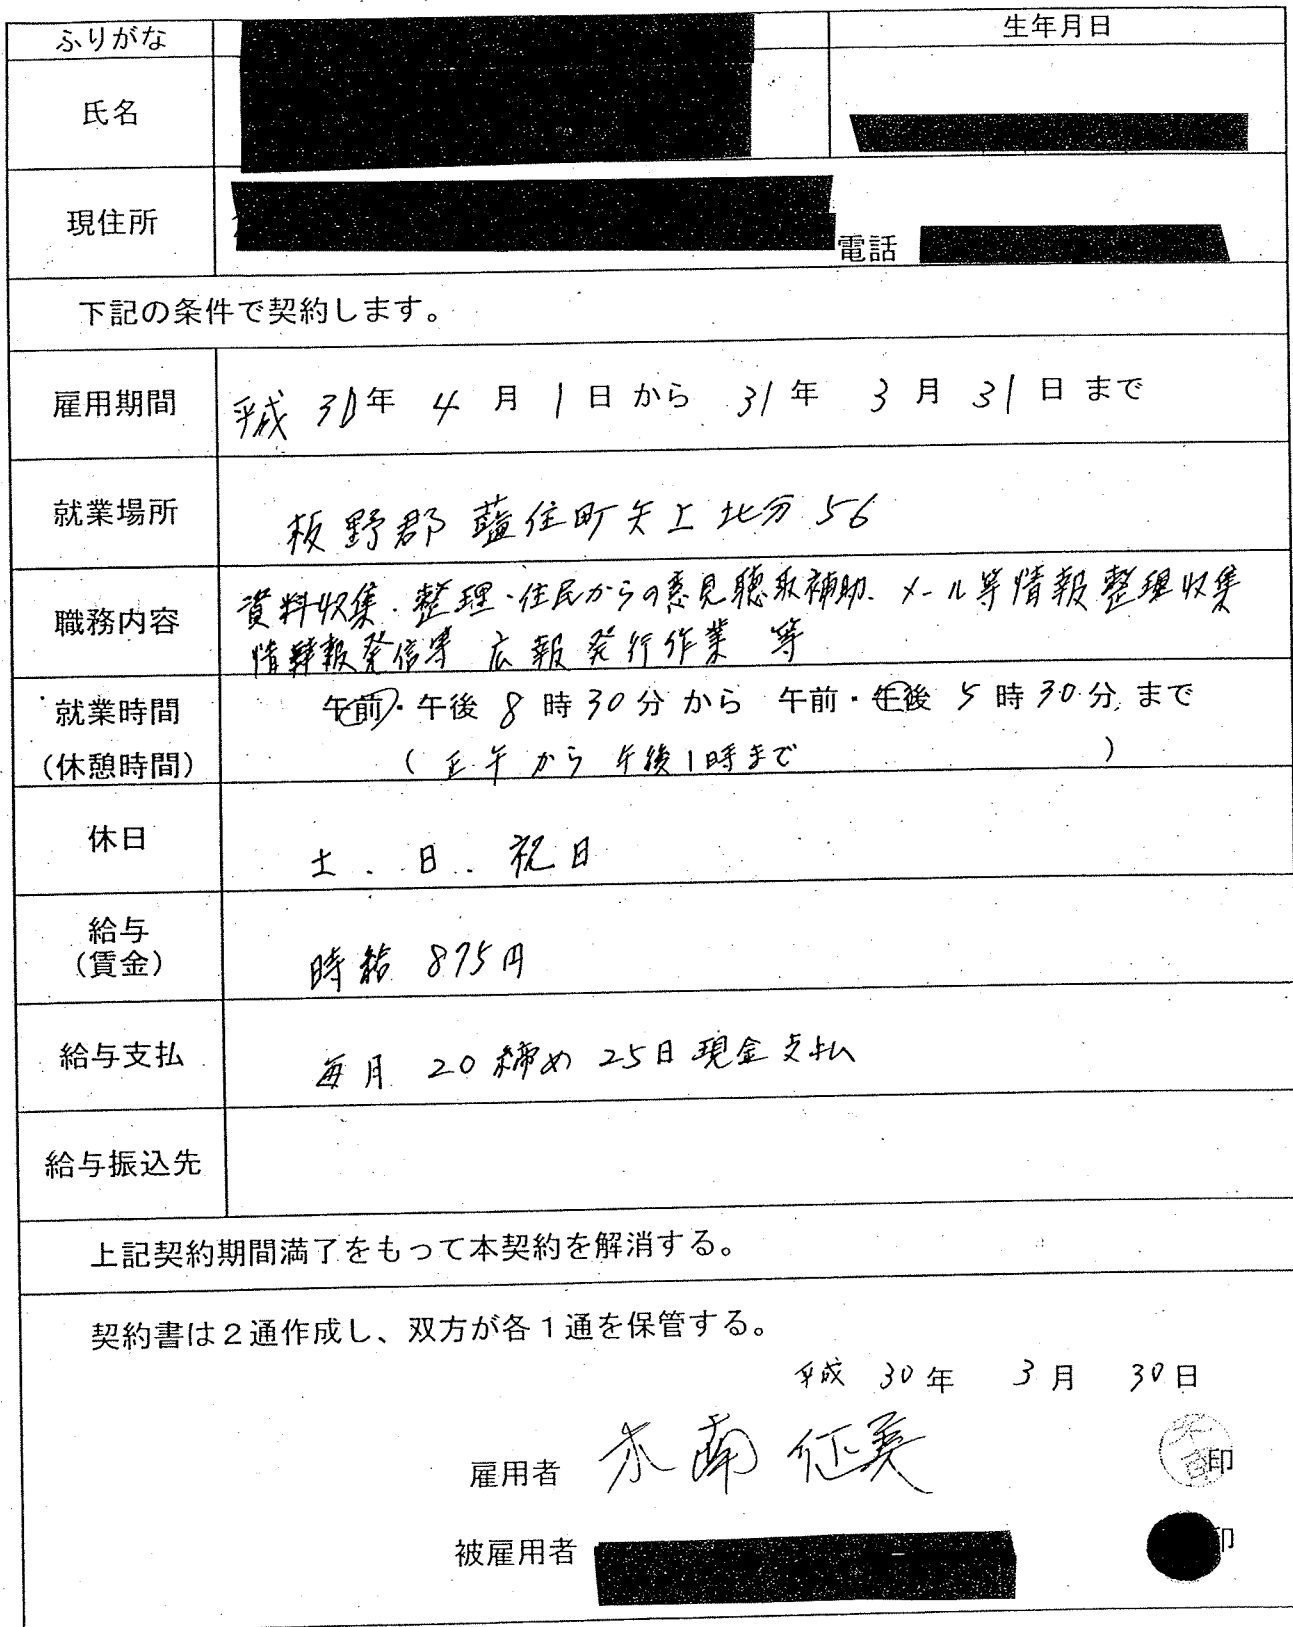 ふりがな
生年月日
氏名
現住所
電話
下記の条件で契約します。
雇用期間 平成 30年 4月 1日から 31年 3月 31日まで
就業場所 板野郡藍住町矢上北分56
職務内容 資料収集・整理・住民からの意見聴取補助、メール等情報整理収集
情報発信等 広報発行作業 等
就業時間 午前・午後 8時30分から 午前・午後 5時30分まで
(休憩時間) (正午から午後1時まで )
休日 土.日.祝日
給与
(賃金) 時給 875円
給与支払 毎月 20締め 25日現金支払
給与振込先
上記契約期間満了をもって本契約を解消する。
契約書は2通作成し、双方が各1通を保管する。
平成 30年 3月 30日
雇用者 木南 征美 印
被雇用者 印